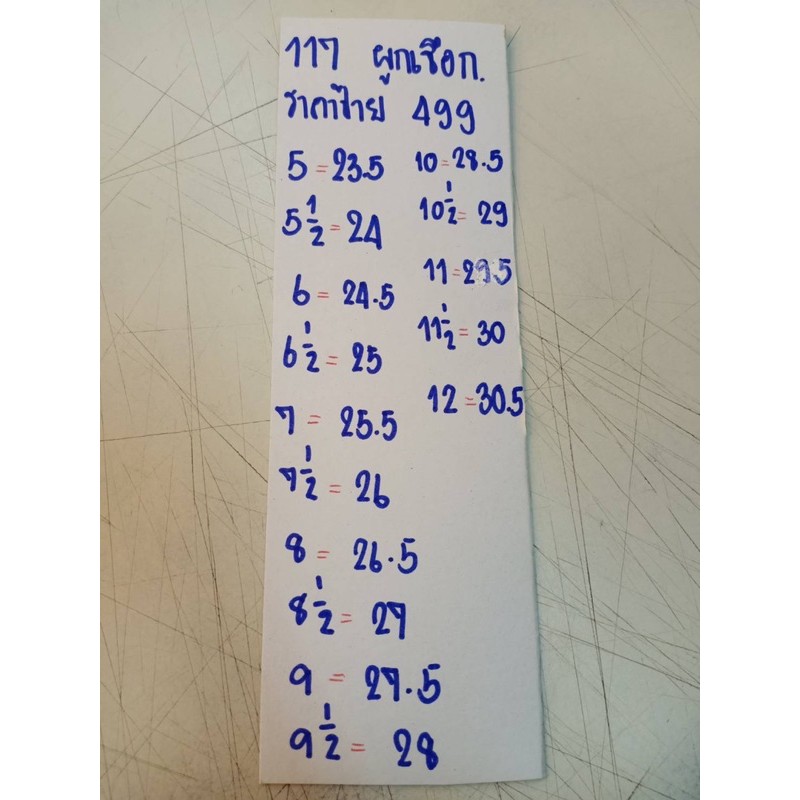 117 ผูกเชือก.
ราคาป้าย 499
5 = 23.5
5 1/2 = 24
6 = 24.5
6 1/2 = 25
7 = 25.5
7 1/2 = 26
8 = 26.5
8 1/2 = 27
9 = 27.5
9 1/2 = 28
10 = 28.5
10 1/2 = 29
11 = 29.5
11 1/2 = 30
12 = 30.5